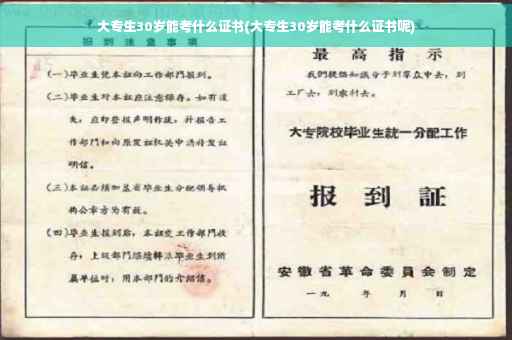 大专生30岁能考什么证书(大专生30岁能考什么证书呢)
报到注意事项
(一)毕业生凭本证向工作部门报到。
(二)毕业生对本证应注意保存。如有遗
失，应即登报声明作废，并报告工
作部门和向原发证机关申请补发证
明信。
(三)本证必须加盖省毕业生分配领导机
构公章方为有效。
(四)毕业生报到后，本证交工作部门收
存，上级部门继续转派毕业生到所
属单位时，用本部门的介绍信。
最高指示
我们提倡知识分子到群众中去，到
工厂去，到农村去。
大专院校毕业生統一分配工作
报到証
安徽省革命委員会制定
一九 年 月 日